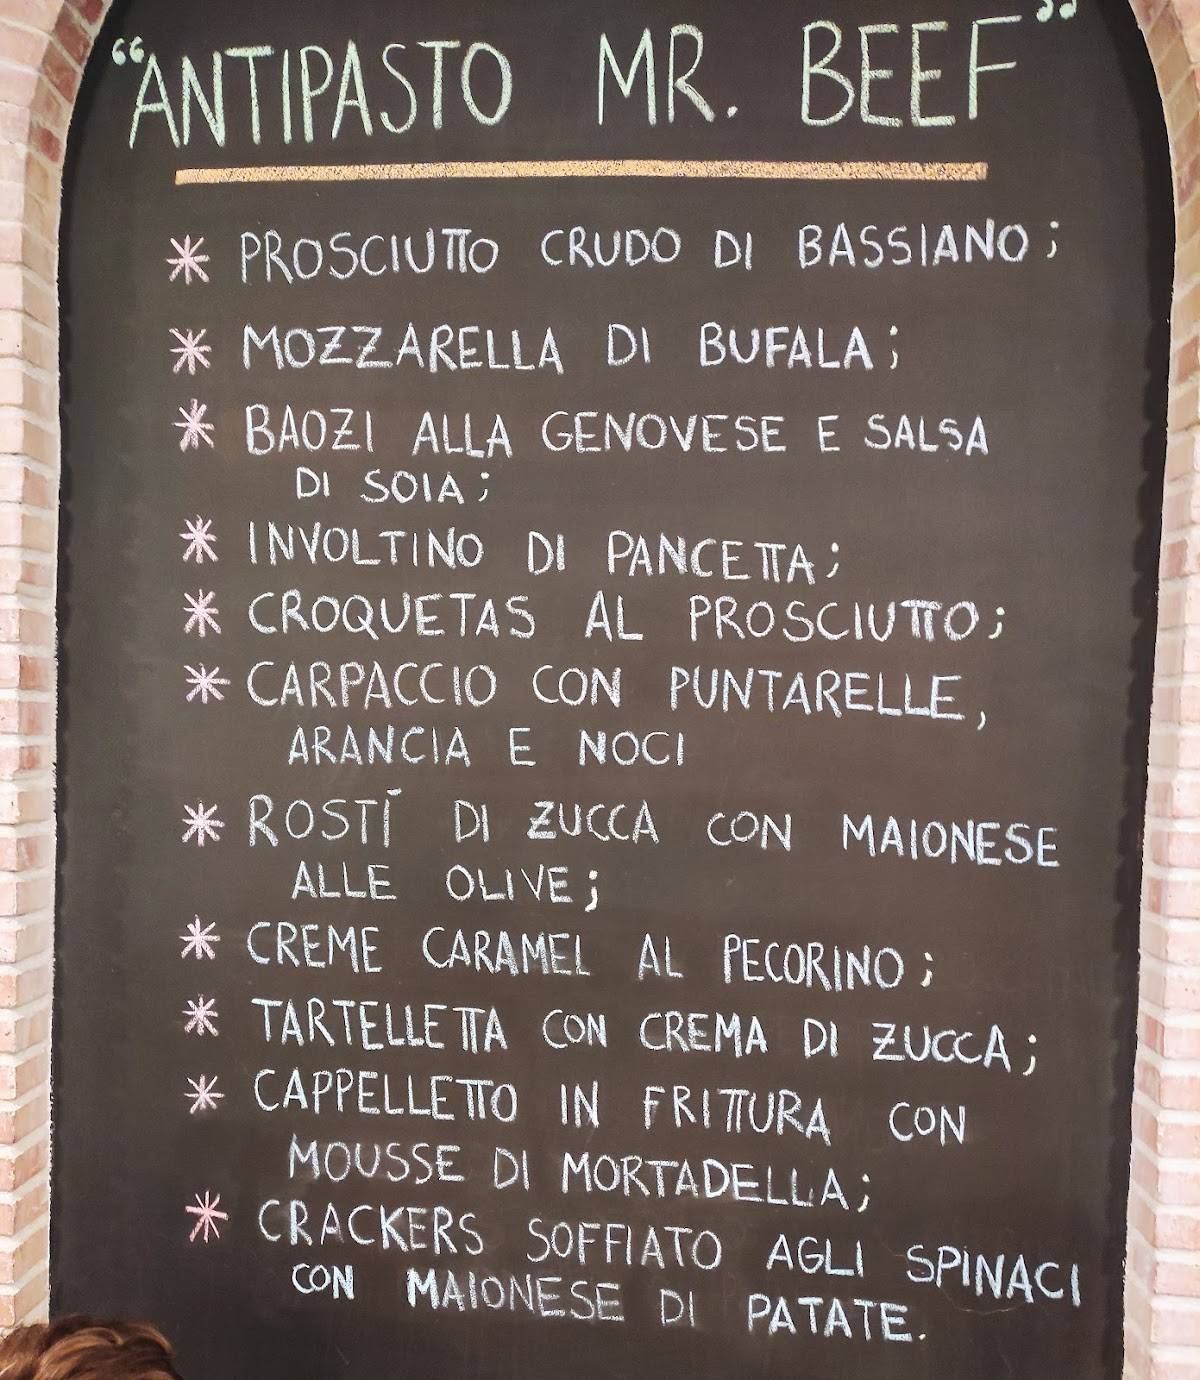 “ANTIPASTO MR. BEEF”
* PROSCIUTTO CRUDO DI BASSIANO;
* MOZZARELLA DI BUFALA;
* BAOZI ALLA GENOVESE E SALSA
DI SOIA;
* INVOLTINO DI PANCETTA;
* CROQUETAS AL PROSCIUTTO;
* CARPACCIO CON PUNTARELLE,
ARANCIA E NOCI
* ROSTÍ DI ZUCCA CON MAIONESE
ALLE OLIVE;
* CREME CARAMEL AL PECORINO;
* TARTELLETTA CON CREMA DI ZUCCA;
* CAPPELLETTO IN FRITTURA CON
MOUSSE DI MORTADELLA;
* CRACKERS SOFFIATO AGLI SPINACI
CON MAIONESE DI PATATE.